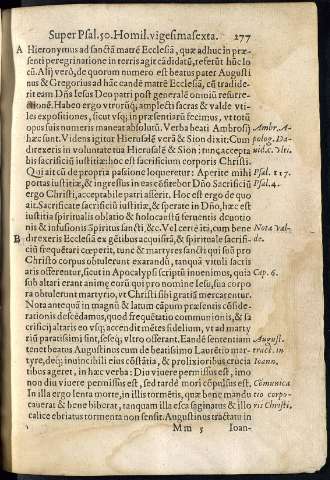 Super Psal.50. Homil. vigesimasexta. 277
A Hieronymus ad sanctã matrẽ Ecclesiã, quæ adhuc in præ-
senti peregrinatione in terris agit cãdidatũ, referũt hũc lo
cũ. Alij verò, de quorum numero est beatus pater Augusti
nus & Gregorius ad hãc eandẽ matrẽ Ecclesiã, cũ tradide-
rit eam Dñs Iesus Deo patri post generalẽ omniũ resurre-
ctionẽ. Habeo ergo vtrorũq; amplecti sacras & valde vti-
les expositiones, sicut vsq; in præsentiarũ fecimus, vt totũ
opus suis numeris maneat absolutũ. Verba beati Ambrosij
hæc sunt. Vide na igitur Hierusalẽ verã & Sion dixit: Cum
direxeris in voluntate tua Hierusalẽ & Sion: tunc accepta-
bis sacrificiũ iustitiæ: hoc est sacrificium corporis Christi.
Qui ait cũ de propria passione loqueretur: Aperite mihi
portas iustitiæ, & ingressus in eas cõfitebor Dño. Sacrificiũ
ergo Christi, acceptabile patri asserit. Hoc est ergo de quo
ait. Sacrificate sacrificiũ iustitiæ, & sperate in Dño, hæc est
iustitia spiritualis oblatio & holocaustũ feruentis deuotio
nis & infusionis spiritus sancti, &c. Vel certè iti, cum bene
B direxeris Ecclesiã ex gẽtibus acquisitã, & spirituale sacrifi-
ciũ frequẽtari cœperit, tunc & martyres sancti qui suũ pro
Christo corpus obtulerunt exarandũ, tanquã vituli iactis
aris offerentur, sicut in Apocalypsi scriptũ inuenimus, quia
sub altari erant animę eorũ qui pro nomine Iesu, sua corpo
ra obtulerunt martyrio, vt Christi sibi gratiã mercarentur.
Nota antequã in magnũ & latum cãpum præsentis cõside-
rationis descẽdamus, quod frequẽtatio communionis, & sa
crificij altaris eo vsq; accendit mẽtes fidelium, vt ad marty
riũ paratissimi sint, seseq; vltro offerant. Eandẽ sententiam
tenet beatus Augustinus cum de beatissimo Laurẽtio mar-
tyre, deq; inuincibili eius cõstãtia, & prolixioribus crucia
tibus ageret, in hæc verba: Diu viuere permissus est, imo
non diu viuere permissus est, sed tardè mori cõpulsus est.
In illa ergo lenta morte, in illis tormẽtis, quia bene mandu
cauerat & bene biberat, tanquam illa esca saginatus & illo
calice ebriatus tormenta non sensit. Augustinus tractatu in
Mm 5 Ioan-
Ambr. A-
polog. Da-
uid. c. vlti.
Psal. 117.
Psal. 4.
Nota Val-
de.
Cap. 6.
August.
tract. in
Ioann.
Comunica
tio corpo-
ris Christi.